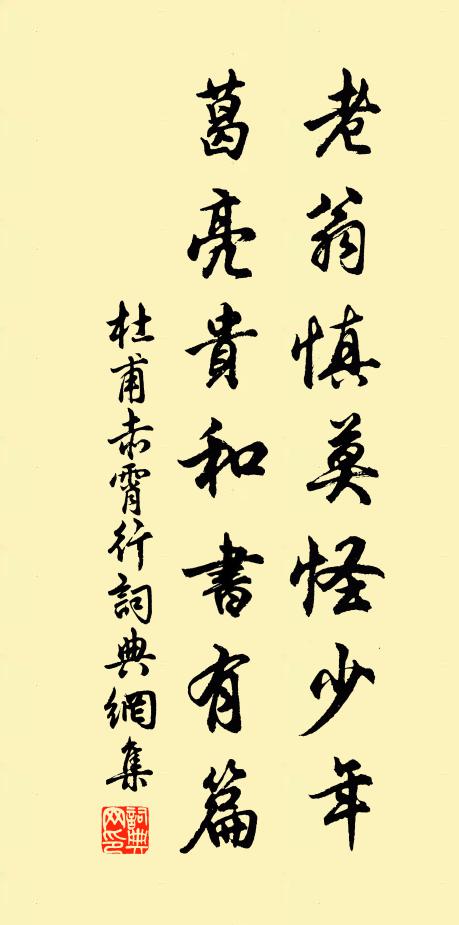 老翁慎莫怪少年
葛亮貴和書有篇
杜甫赤霄行詞典網集
詞典網印